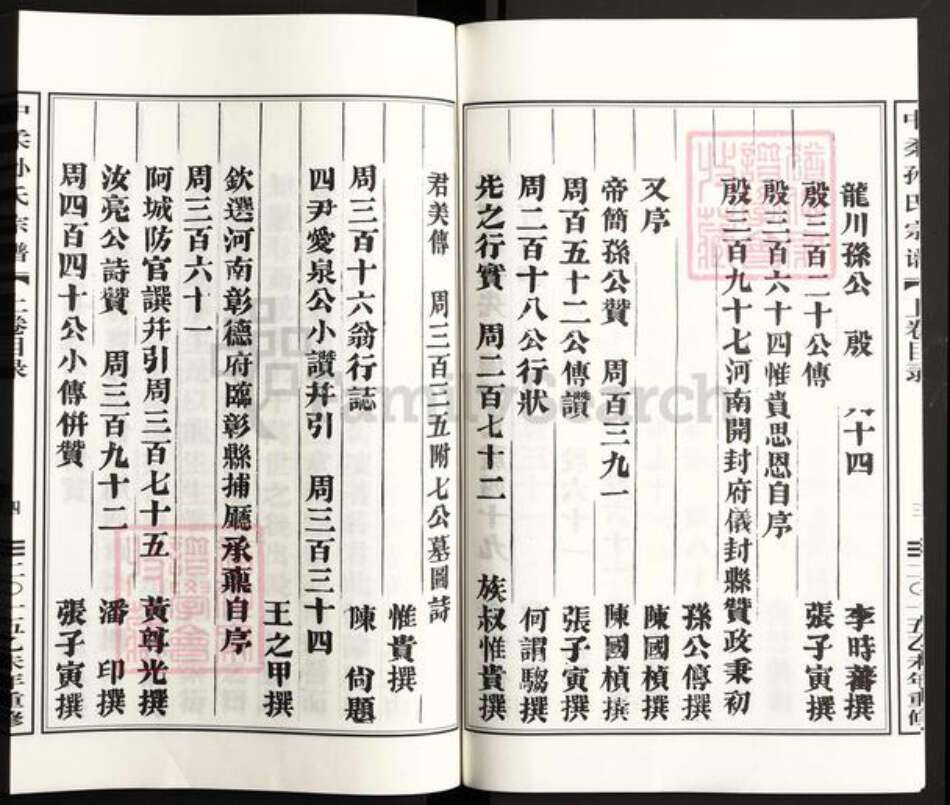 龍川孫公 殷 十四 李時蕃撰
殷三百二十公傳 張子寅撰
殷三百六十四惟貴思恩自序
殷三百九十七河南開封府儀封縣贊政秉初
孫公傳 撰
又序 陳國楨撰
帝簡孫公贊 周百三九一 陳國楨撰
周百五十二公傳讚 張子寅撰
周二百十八公行狀 何謂騶撰
先之行實 周二百七十二 族叔惟貴撰
君美傳 周三百三五附七公墓圖詩
惟貴撰
周三百十六翁行誌 陳尙題
四尹愛泉公小讚幷引 周三百三十四
王之甲撰
欽選河南彰德府臨彰縣捕廳承薫自序
周三百六十一
阿城防官譔幷引周三百七十五 黃尊光撰
汝亮公詩贊 周三百九十二 潘印撰
周四百四十公小傳併贊 張子寅撰
孫氏宗譜
上卷目录
三
二〇一五乙未年重修
孙氏宗譜
上卷目录
四
二〇一五乙未年重修
FamilySearch